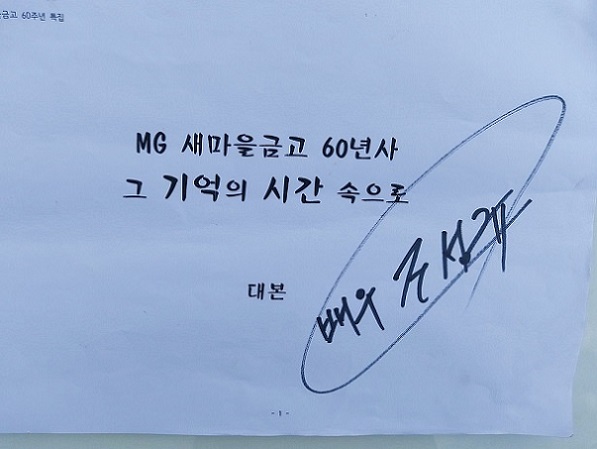 금고 60주년 특집
MG 새마을금고 60년사
그 기억의 시간 속으로
대본
배우 조성규
- 1 -